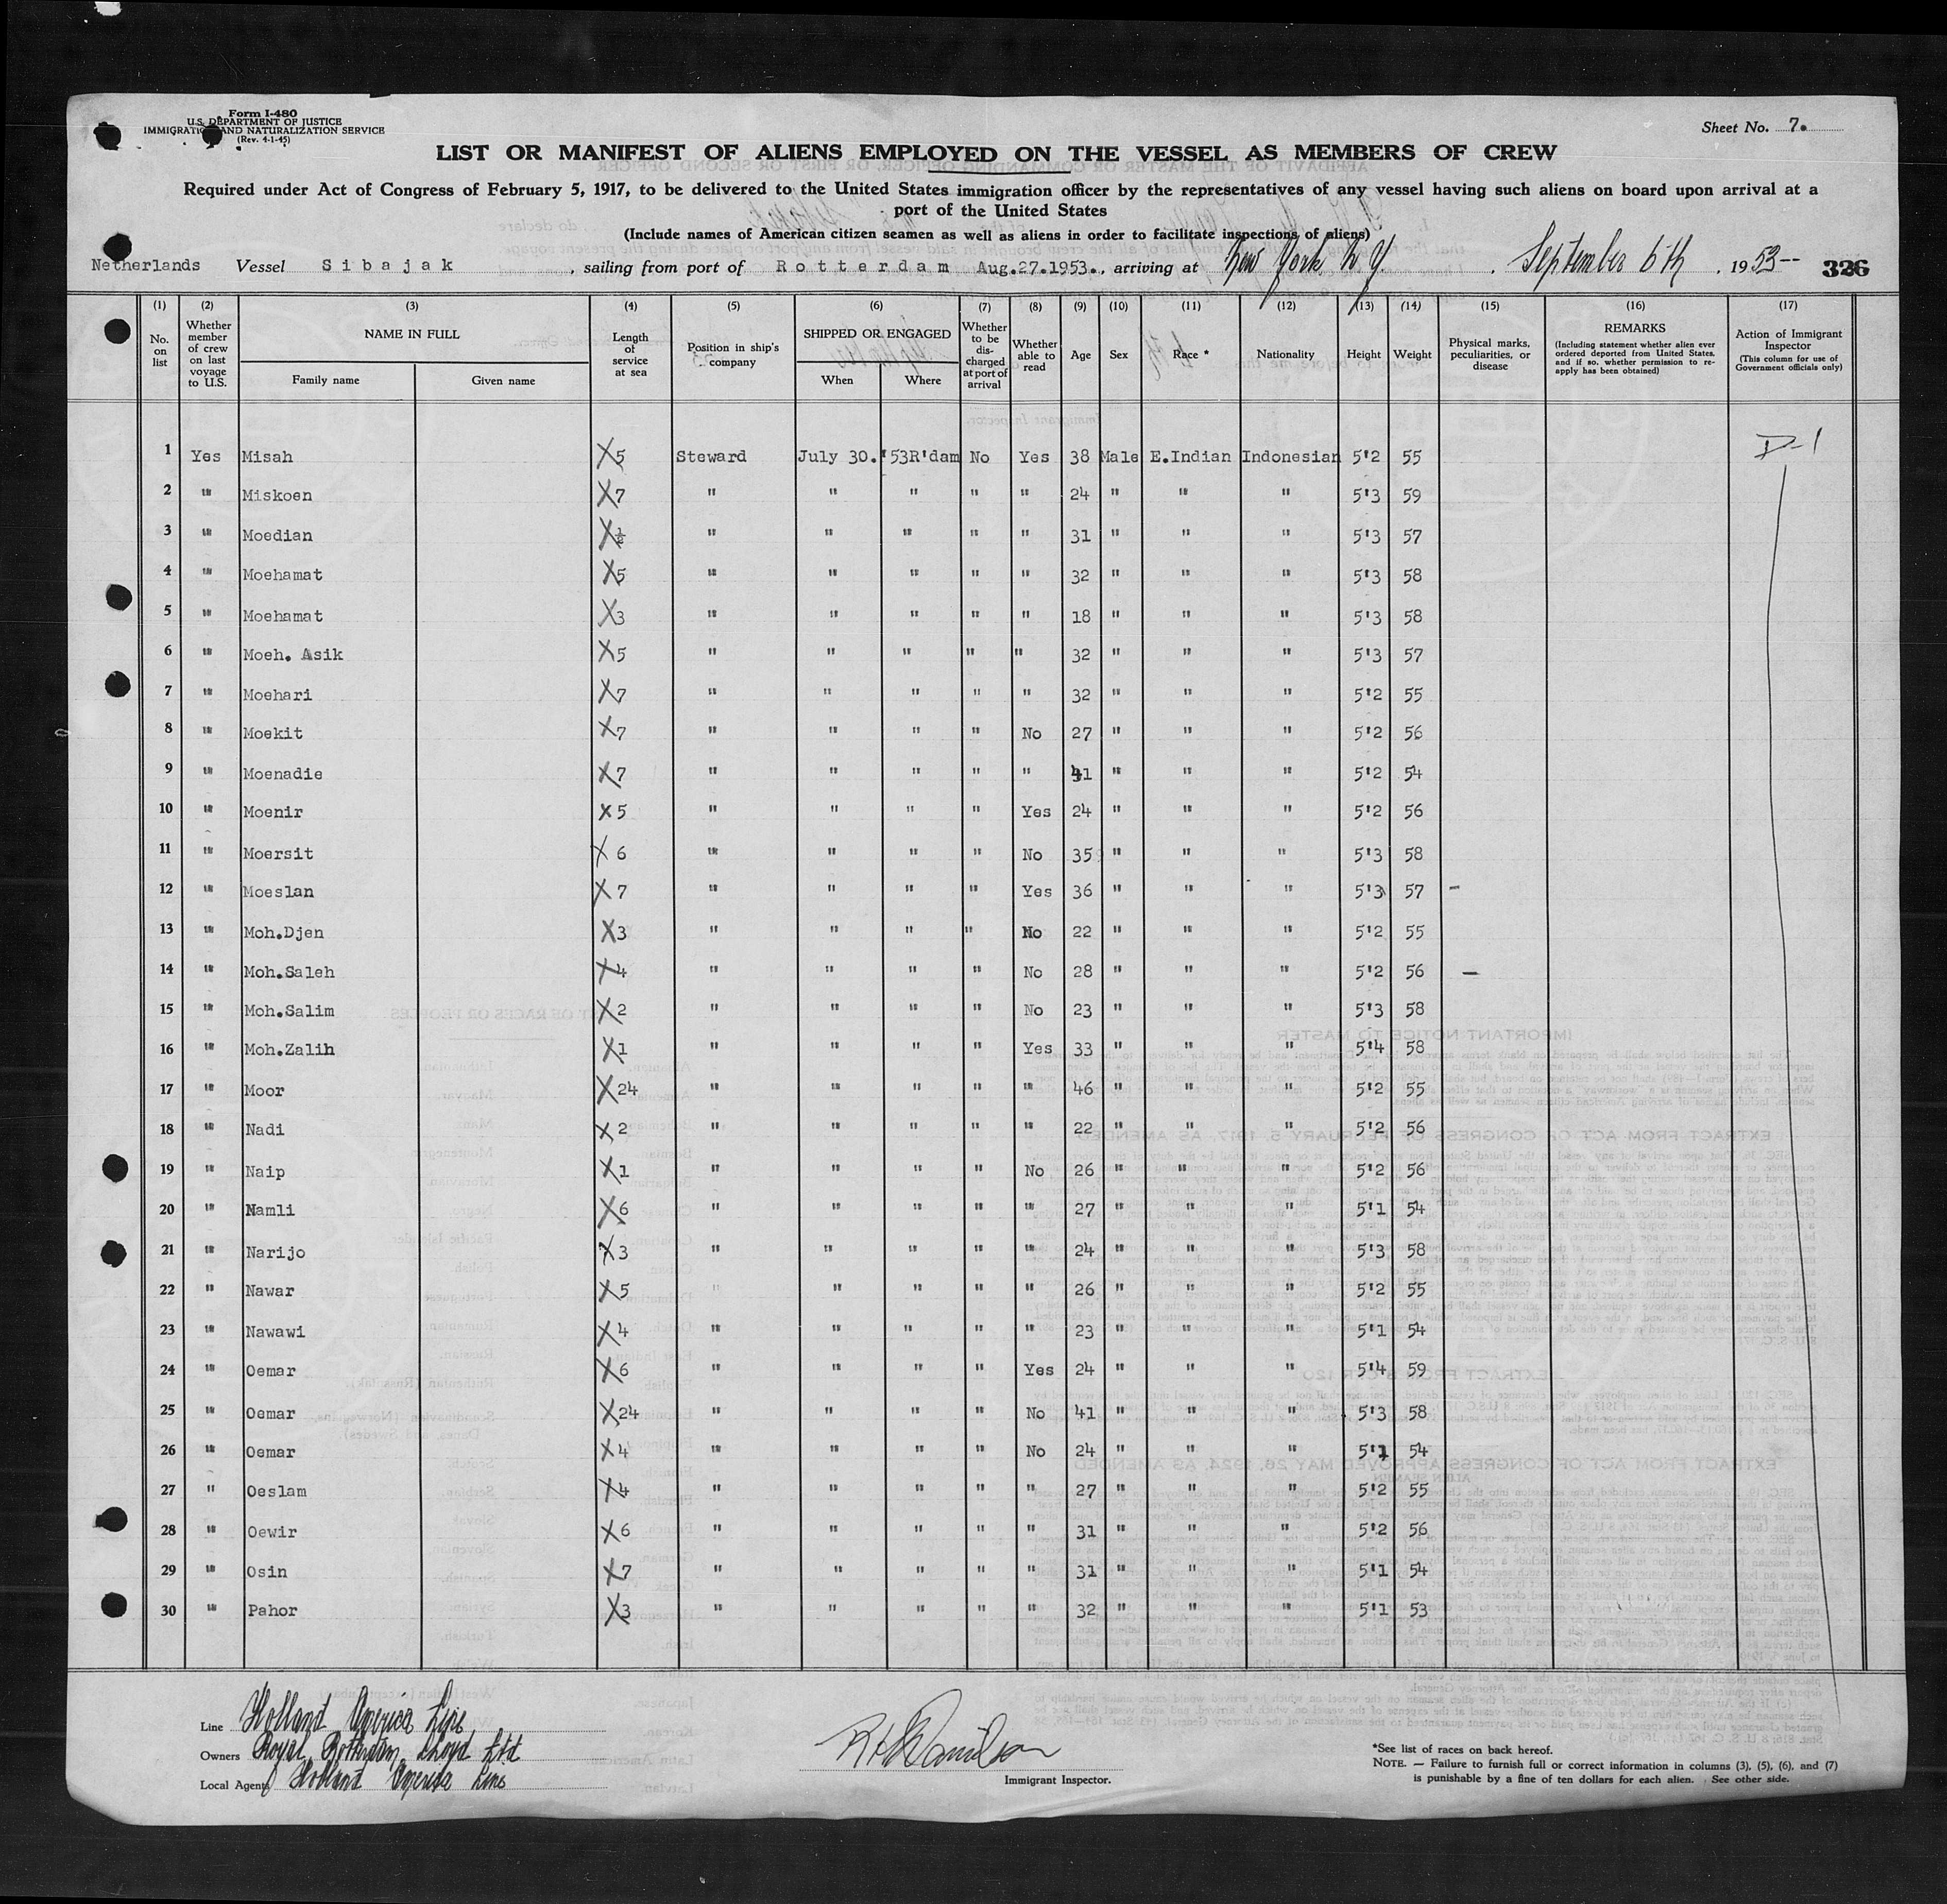 Form I-480
U.S. DEPARTMENT OF JUSTICE
IMMIGRATION AND NATURALIZATION SERVICE
(Rev. 4-1-45)
Sheet No. 7.
LIST OR MANIFEST OF ALIENS EMPLOYED ON THE VESSEL AS MEMBERS OF CREW
Required under Act of Congress of February 5, 1917, to be delivered to the United States immigration officer by the representatives of any vessel having such aliens on board upon arrival at a
port of the United States
(Include names of American citizen seamen as well as aliens in order to facilitate inspections of aliens)
Netherlands Vessel Sibajak, sailing from port of Rotterdam Aug.27.1953., arriving at New York N.Y. September 6th, 1953-- 326
(1) (2) (3) (4) (5) (6) (7) (8) (9) (10) (11) (12) (13) (14) (15) (16) (17)
No. on list
Whether member of crew on last voyage to U.S.
NAME IN FULL
Family name Given name
Length of service at sea
Position in ship's company
SHIPPED OR ENGAGED
When Where
Whether to be discharged at port of arrival
Whether able to read
Age
Sex
Race *
Nationality
Height
Weight
Physical marks, peculiarities, or disease
REMARKS
(Including statement whether alien ever ordered deported from United States, and if so, whether permission to re-apply has been obtained)
Action of Immigrant Inspector
(This column for use of Government officials only)
1 Yes Misah X5 Steward July 30.'53 R'dam No Yes 38 Male E.Indian Indonesian 5'2 55 D-1
2 " Miskoen X7 " " " " " 24 " " " 5'3 59
3 " Moedian X½ " " " " " 31 " " " 5'3 57
4 " Moehamat X5 " " " " " 32 " " " 5'3 58
5 " Moehamat X3 " " " " " 18 " " " 5'3 58
6 " Moeh. Asik X5 " " " " " 32 " " " 5'3 57
7 " Moehari X7 " " " " " 32 " " " 5'2 55
8 " Moekit X7 " " " " No 27 " " " 5'2 56
9 " Moenadie X7 " " " " " 41 " " " 5'2 54
10 " Moenir X5 " " " " Yes 24 " " " 5'2 56
11 " Moersit X6 " " " " No 35 " " " 5'3 58
12 " Moeslan X7 " " " " Yes 36 " " " 5'3 57 -
13 " Moh.Djen X3 " " " " No 22 " " " 5'2 55
14 " Moh.Saleh X4 " " " " No 28 " " " 5'2 56 -
15 " Moh.Salim X2 " " " " No 23 " " " 5'3 58
16 " Moh.Zalih X1 " " " " Yes 33 " " " 5'4 58
17 " Moor X24 " " " " " 46 " " " 5'2 55
18 " Nadi X2 " " " " " 22 " " " 5'2 56
19 " Naip X1 " " " " No 26 " " " 5'2 56
20 " Namli X6 " " " " " 27 " " " 5'1 54
21 " Narijo X3 " " " " " 24 " " " 5'3 58
22 " Nawar X5 " " " " " 26 " " " 5'2 55
23 " Nawawi X4 " " " " " 23 " " " 5'1 54
24 " Oemar X6 " " " " Yes 24 " " " 5'4 59
25 " Oemar X24 " " " " No 41 " " " 5'3 58
26 " Oemar X4 " " " " No 24 " " " 5'1 54
27 " Oeslam X4 " " " " " 27 " " " 5'2 55
28 " Oewir X6 " " " " " 31 " " " 5'2 56
29 " Osin X7 " " " " " 31 " " " 5'1 54
30 " Pahor X3 " " " " " 32 " " " 5'1 53
Line Holland America Line
Owners Royal Rotterdam Lloyd Ltd
Local Agents Holland America Line
Immigrant Inspector.
*See list of races on back hereof.
NOTE. — Failure to furnish full or correct information in columns (3), (5), (6), and (7)
is punishable by a fine of ten dollars for each alien. See other side.